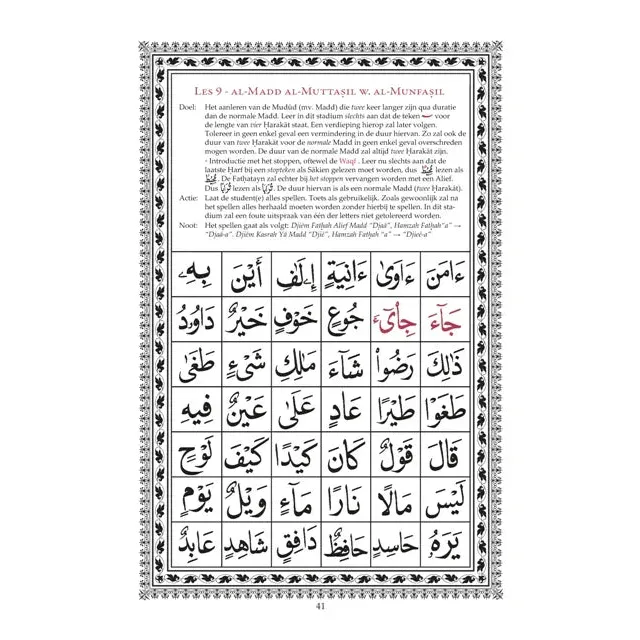 Les 9 - al-Madd al-Muttaṣil w. al-Munfaṣil
Doel: Het aanleren van de Mudūd (mv. Madd) die twee keer langer zijn qua duratie
dan de normale Madd. Leer in dit stadium slechts aan dat de teken voor
de lengte van vier Ḥarakāt staat. Een verdieping hierop zal later volgen.
Tolereer in geen enkel geval een vermindering in de duur hiervan. Zo zal ook de
duur van twee Ḥarakāt voor de normale Madd in geen geval overschreden
mogen worden. De duur van de normale Madd zal altijd twee Ḥarakāt zijn.
- Introductie met het stoppen, oftewel de Waqf . Leer nu slechts aan dat de
laatste Ḥarf bij een stopteken als Sākien gelezen moet worden, dus lezen als
. De Fatḥatayn zal echter bij het stoppen vervangen worden met een Alief.
Dus lezen als . De duur hiervan is als een normale Madd (twee Ḥarakāt).
Actie: Laat de student(e) alles spellen. Toets als gebruikelijk. Zoals gewoonlijk zal na
het spellen alles herhaald moeten worden zonder hierbij te spellen. In dit sta-
dium zal een foute uitspraak van één der letters niet getolereerd worden.
Noot: Het spellen gaat als volgt: Djiém Fatḥah Alief Madd "Djaā", Hamzah Fatḥah"a" →
"Djaā-a". Djiém Kasrah Yā Madd "Djié", Hamzah Fatḥah "a" → "Djieé-a"
ءَامَنَ ءَاوَىٰ ءَانِيَةٍ إِۦلَٰفِ أَيْنَ بِهِۦ
جَآءَ جِا۟ىٓءَ جُوعٍ خَوْفٍ خَيْرٌ دَاوُۥدُ
ذَٰلِكَ رَضُوا۟ شَآءَ مَٰلِكِ شَىْءٍ طَغَىٰ
طَغَوْا۟ طَيْرًا عَادٍ عَلَىٰ عَيْنٌ فِيهِ
قَالَ قَوْلٌ كَانَ كَيْدًا كَيْفَ لَوْحٍ
لَيْسَ مَالًا نَارًا مَآءٍ وَيْلٌ يَوْمٍ
يَرَهُۥ حَاسِدٍ حَافِظٌ دَافِقٍ شَاهِدٍ عَابِدٌ
41